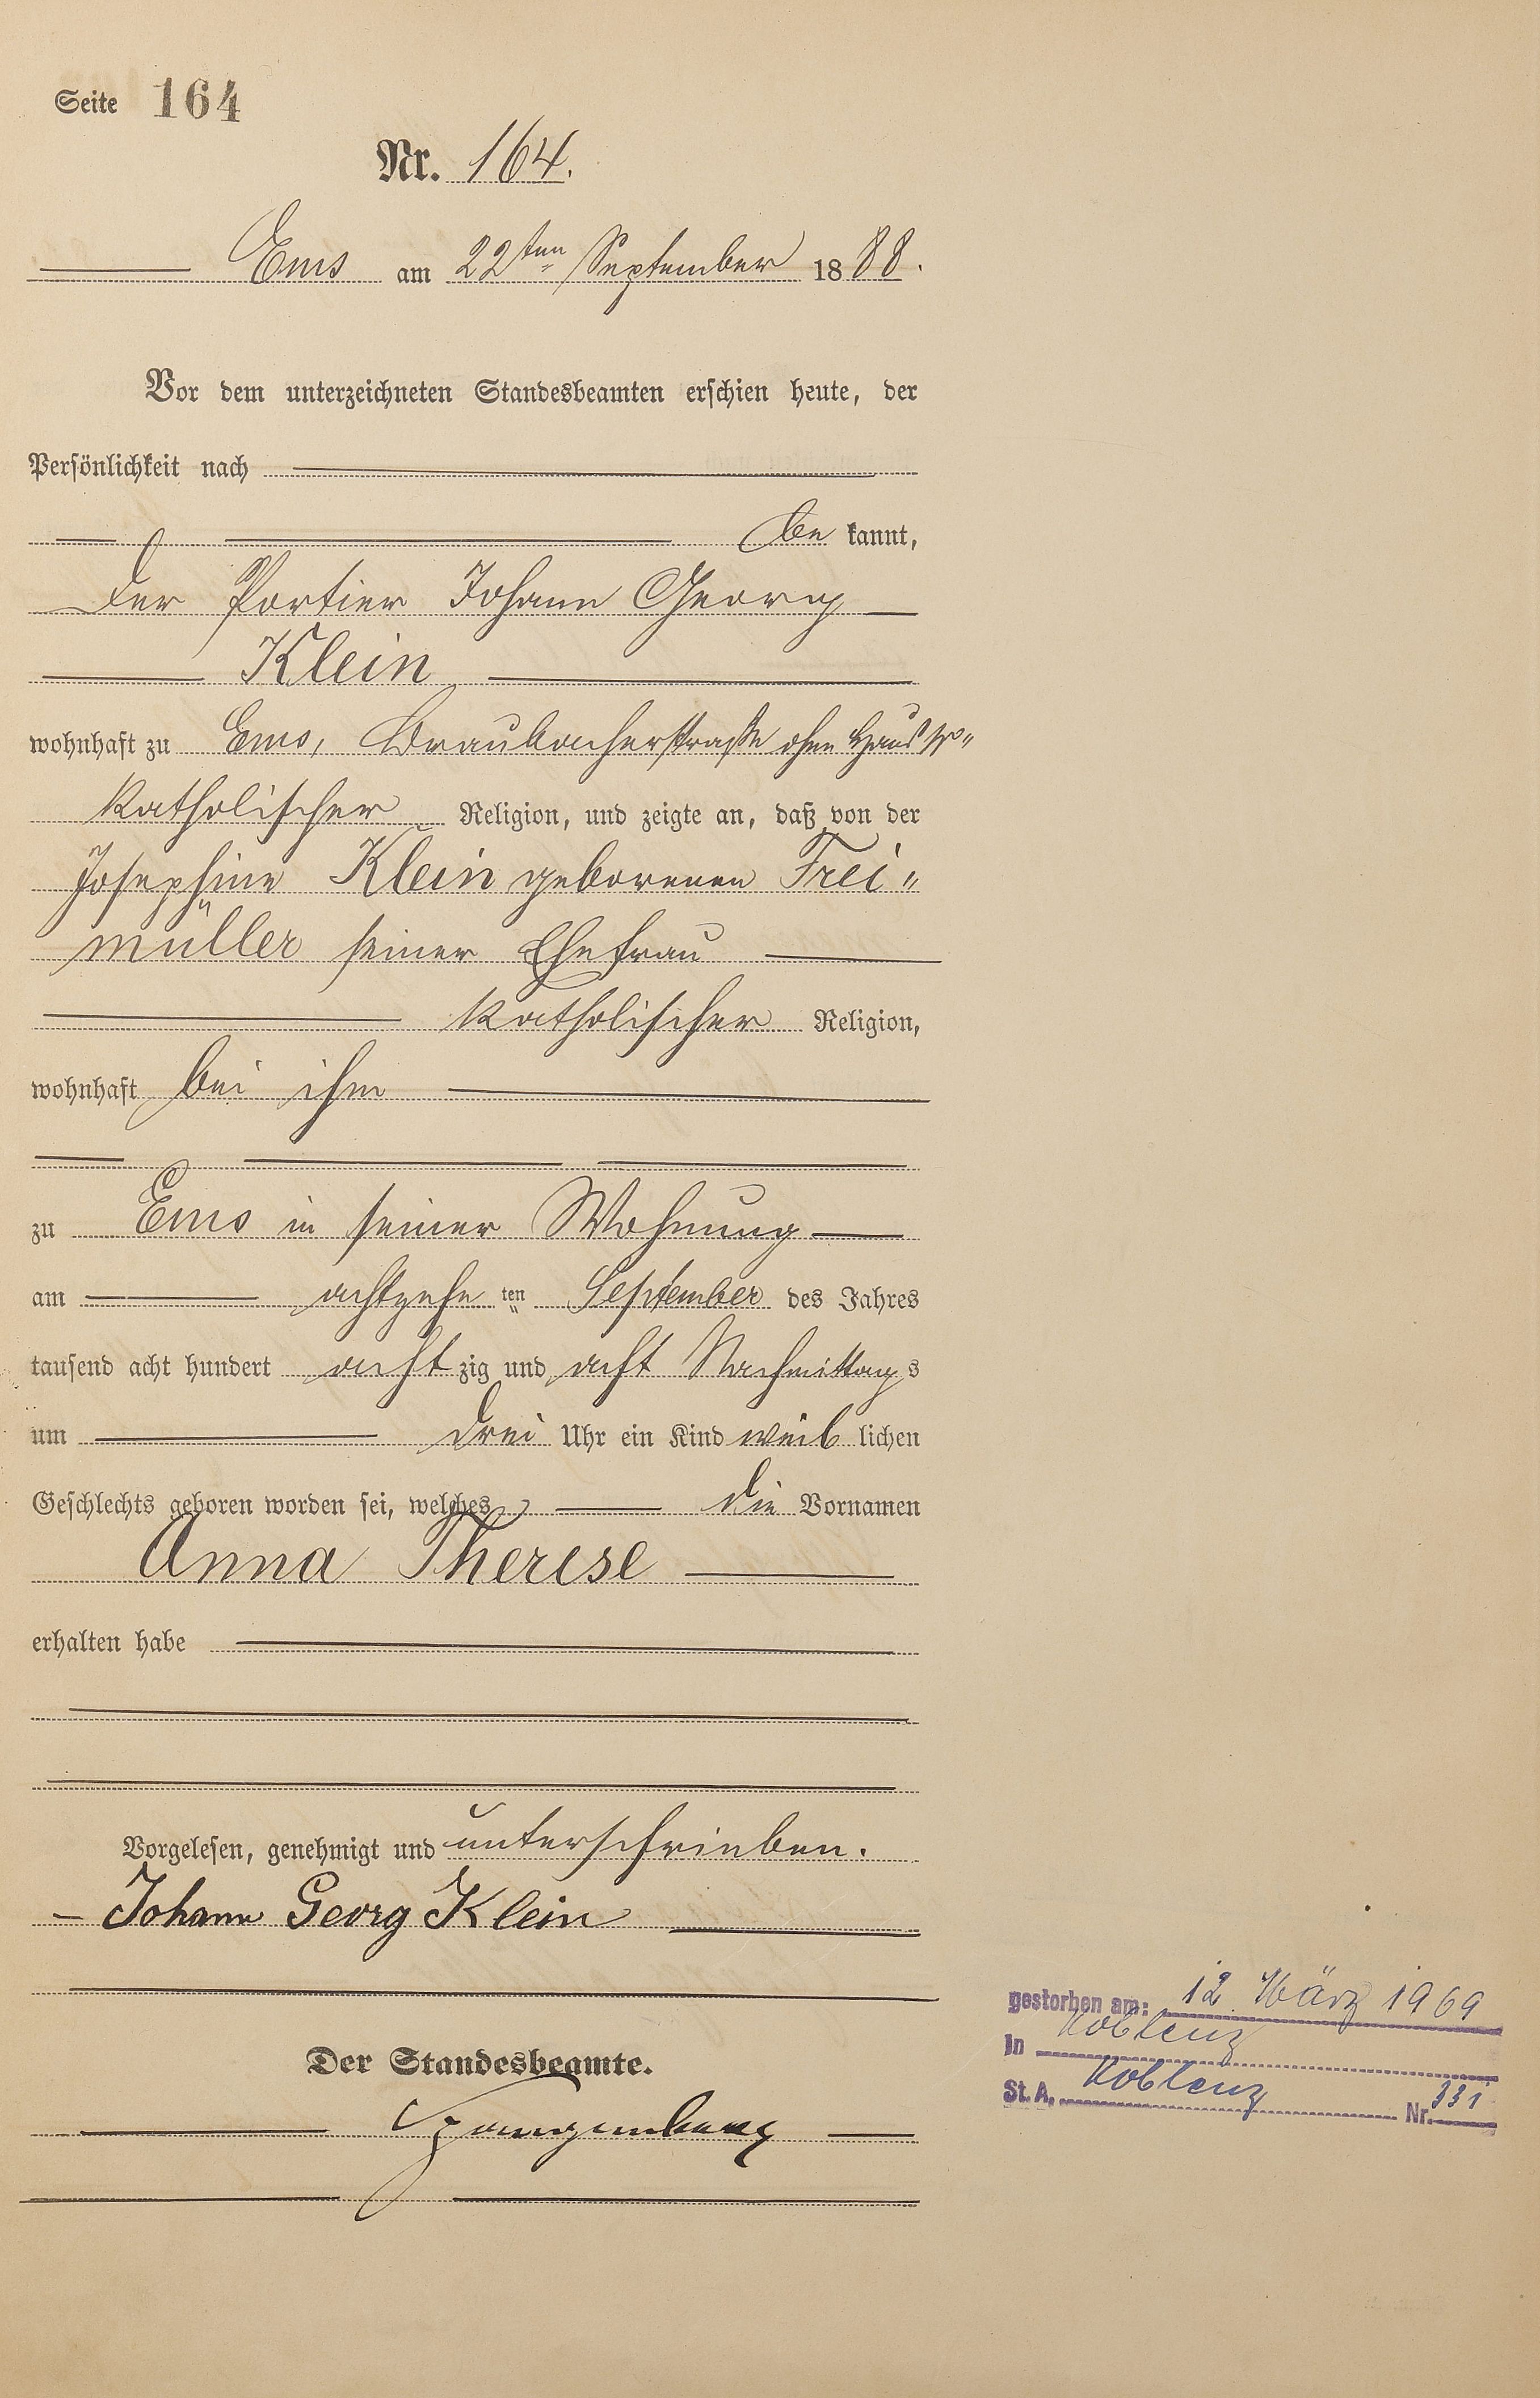 Seite 164
Nr. 164.
Ems am 22ten September 1888.
Vor dem unterzeichneten Standesbeamten erschien heute, der
Persönlichkeit nach
be kannt,
der Portier Johann Georg
Klein
wohnhaft zu Ems, Braubacherstraße ohne Haus No
katholischer Religion, und zeigte an, daß von der
Josephine Klein geborenen Frei„
müller seiner Ehefrau
katholischer Religion,
wohnhaft bei ihm
zu Ems in seiner Wohnung
am achtzehn ten September des Jahres
tausend acht hundert acht zig und acht Nachmittags
um drei Uhr ein Kind weib lichen
Geschlechts geboren worden sei, welches die Vornamen
Anna Therese
erhalten habe
Vorgelesen, genehmigt und unterschrieben.
Johann Georg Klein
Der Standesbeamte.
gestorben am: 12 März 1969
In Koblenz
St. A. Koblenz Nr. 331